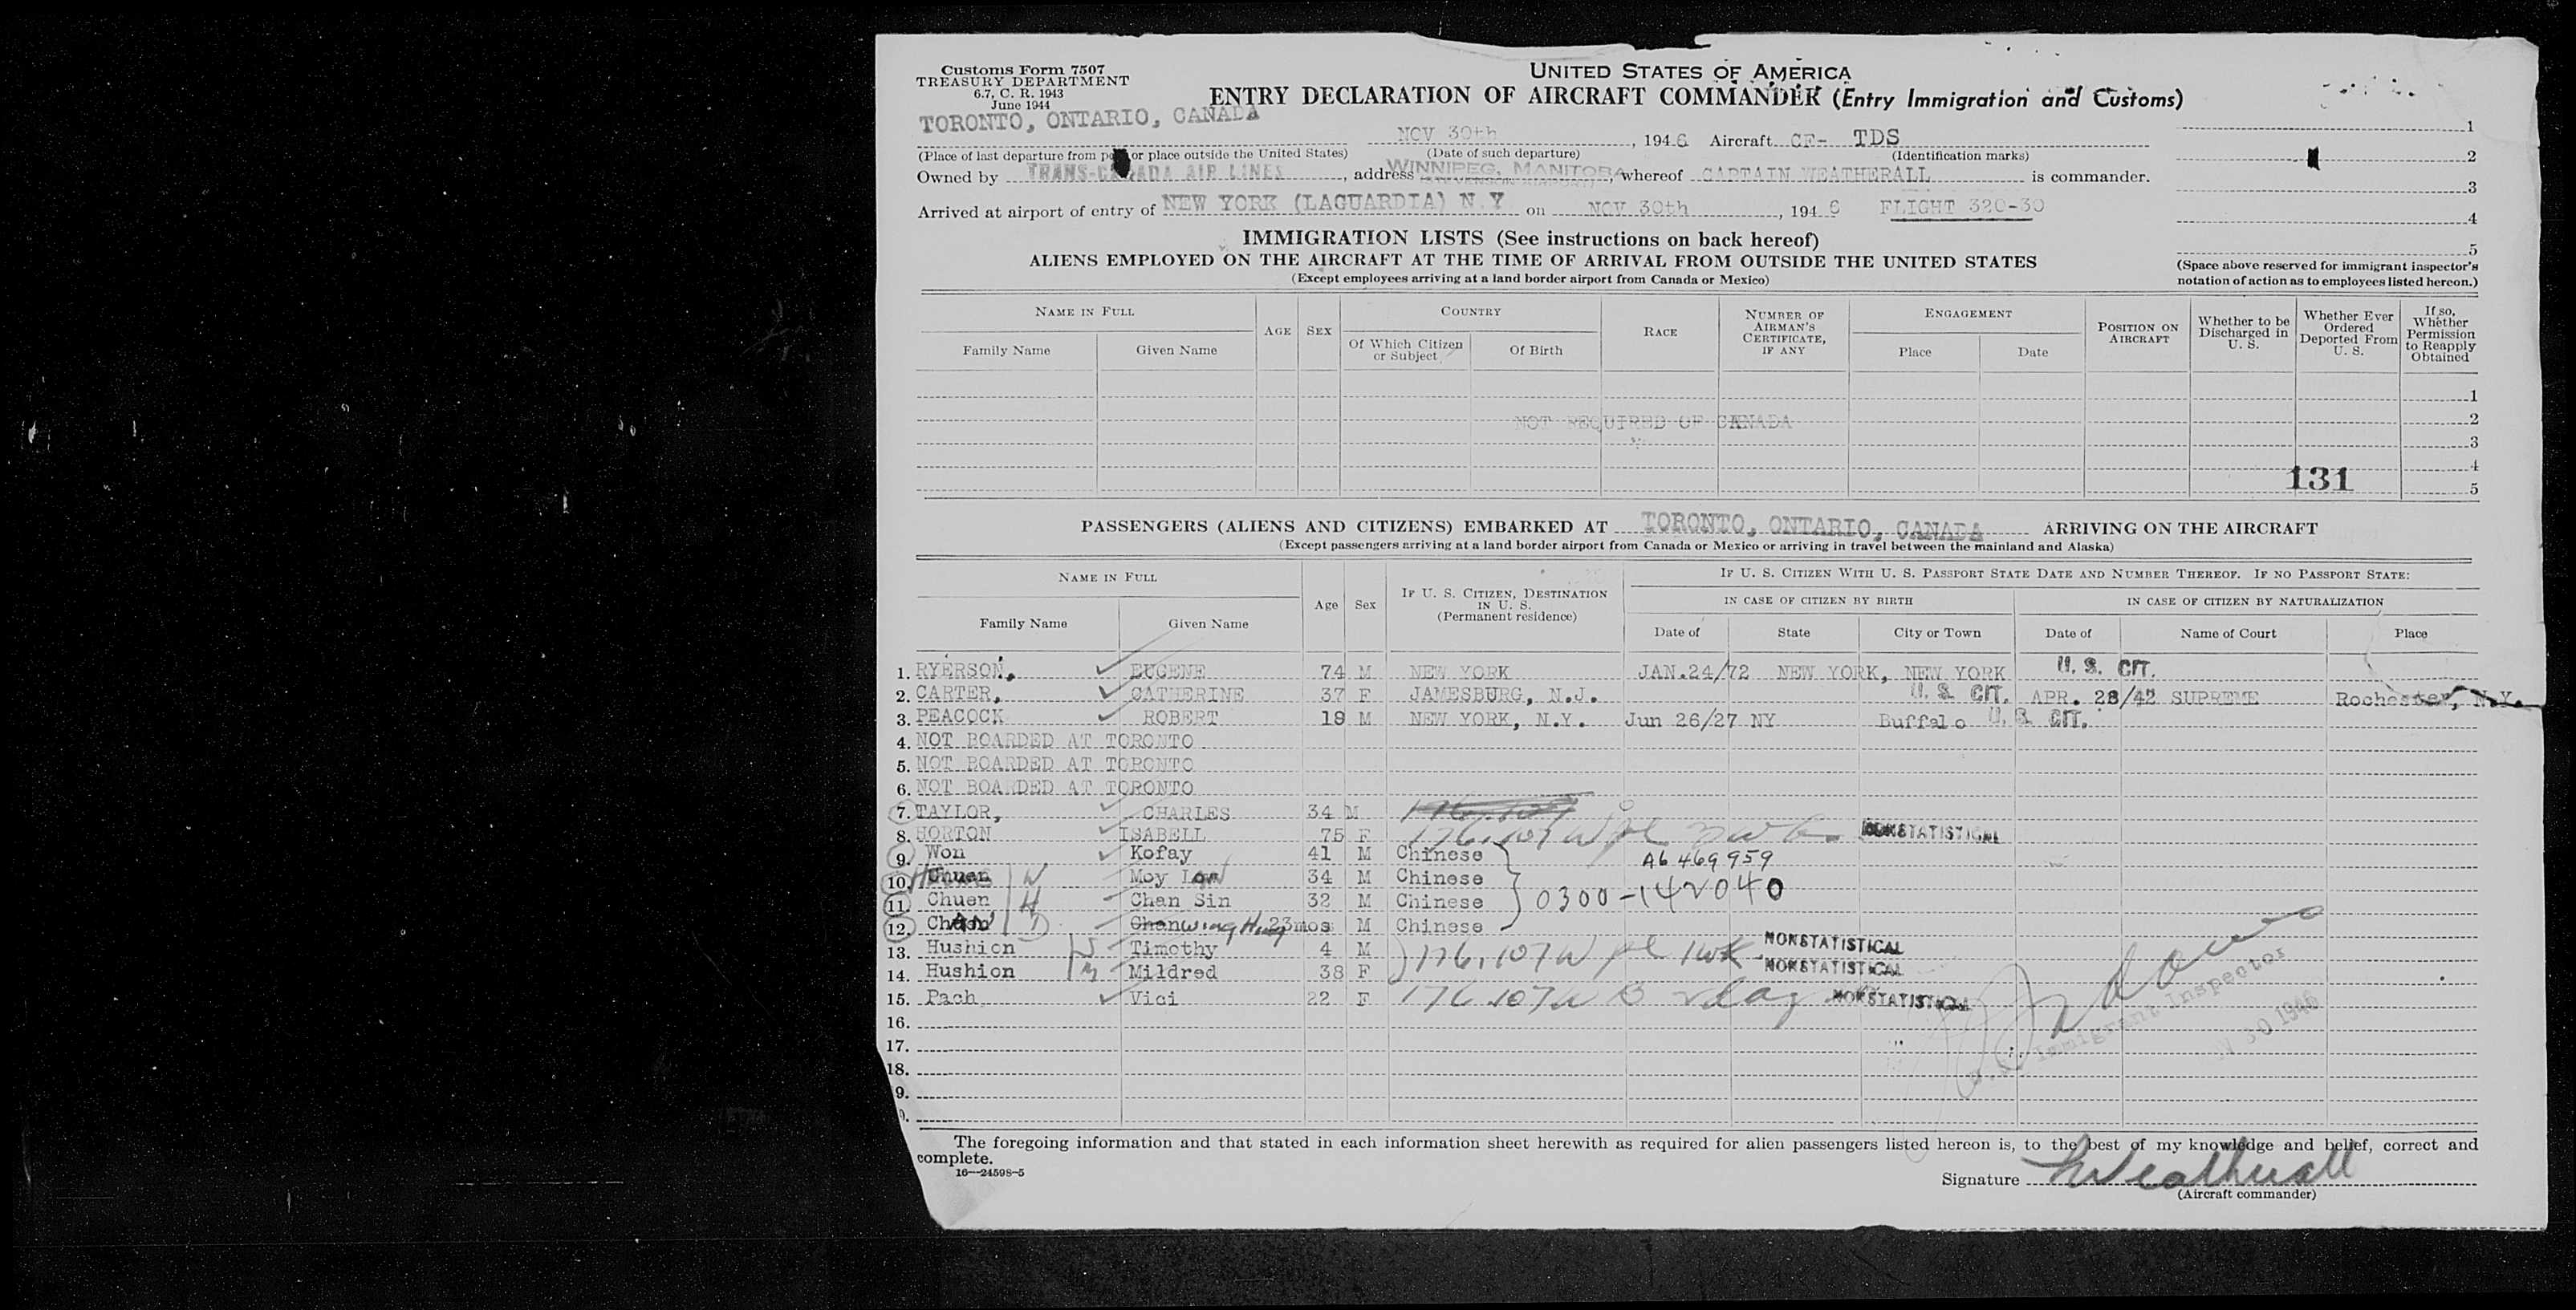 Customs Form 7507
TREASURY DEPARTMENT
6.7, C. R. 1943
June 1944
UNITED STATES OF AMERICA
ENTRY DECLARATION OF AIRCRAFT COMMANDER (Entry Immigration and Customs)
TORONTO, ONTARIO, CANADA NOV 30th, 1946 Aircraft CF- TDS
(Place of last departure from port or place outside the United States) (Date of such departure) (Identification marks)
Owned by TRANS-CANADA AIR LINES, address WINNIPEG, MANITOBA, whereof CAPTAIN WEATHERALL is commander.
Arrived at airport of entry of NEW YORK (LAGUARDIA) N.Y on NOV 30th, 1946 FLIGHT 320-30
1
2
3
4
5
(Space above reserved for immigrant inspector's
notation of action as to employees listed hereon.)
IMMIGRATION LISTS (See instructions on back hereof)
ALIENS EMPLOYED ON THE AIRCRAFT AT THE TIME OF ARRIVAL FROM OUTSIDE THE UNITED STATES
(Except employees arriving at a land border airport from Canada or Mexico)
NAME IN FULL AGE SEX COUNTRY RACE NUMBER OF AIRMAN'S CERTIFICATE, IF ANY ENGAGEMENT POSITION ON AIRCRAFT Whether to be Discharged in U. S. Whether Ever Ordered Deported From U. S. If so, Whether Permission to Reapply Obtained
Family Name Given Name Of Which Citizen or Subject Of Birth Place Date
1
NOT REQUIRED OF CANADA 2
3
4
131 5
PASSENGERS (ALIENS AND CITIZENS) EMBARKED AT TORONTO, ONTARIO, CANADA ARRIVING ON THE AIRCRAFT
(Except passengers arriving at a land border airport from Canada or Mexico or arriving in travel between the mainland and Alaska)
NAME IN FULL Age Sex IF U. S. CITIZEN, DESTINATION IN U. S. (Permanent residence) IF U. S. CITIZEN WITH U. S. PASSPORT STATE DATE AND NUMBER THEREOF. IF NO PASSPORT STATE:
IN CASE OF CITIZEN BY BIRTH IN CASE OF CITIZEN BY NATURALIZATION
Family Name Given Name Date of State City or Town Date of Name of Court Place
1. RYERSON, EUGENE 74 M NEW YORK JAN.24/72 NEW YORK, NEW YORK U. S. CIT.
2. CARTER, CATHERINE 37 F JAMESBURG, N.J. U. S. CIT. APR. 28/42 SUPREME Rochester, N.Y.
3. PEACOCK ROBERT 19 M NEW YORK, N.Y. Jun 26/27 NY Buffalo U. S. CIT.
4. NOT BOARDED AT TORONTO
5. NOT BOARDED AT TORONTO
6. NOT BOARDED AT TORONTO
7. TAYLOR, CHARLES 34 M 176.107
8. HORTON ISABELL 75 F 176.107 W NONSTATISTICAL
9. Won Kofay 41 M Chinese A6 469 959
10. Chuen W Moy Law 34 M Chinese
11. Chuen H Chan Sin 32 M Chinese 0300-142040
12. Chan D Chanwing Hung 23mos M Chinese
13. Hushion S Timothy 4 M 176.107 W 1wk NONSTATISTICAL
14. Hushion M Mildred 38 F NONSTATISTICAL
15. Pach Vici 22 F 176.107 NONSTATISTICAL
16.
17.
18.
9.
Immigrant Inspector
30 1946
The foregoing information and that stated in each information sheet herewith as required for alien passengers listed hereon is, to the best of my knowledge and belief, correct and
complete.
16—24598-5
Signature Weatherall
(Aircraft commander)